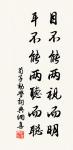 目不能兩視而明
耳不能兩聽而聰
荀子勸學詞典網書